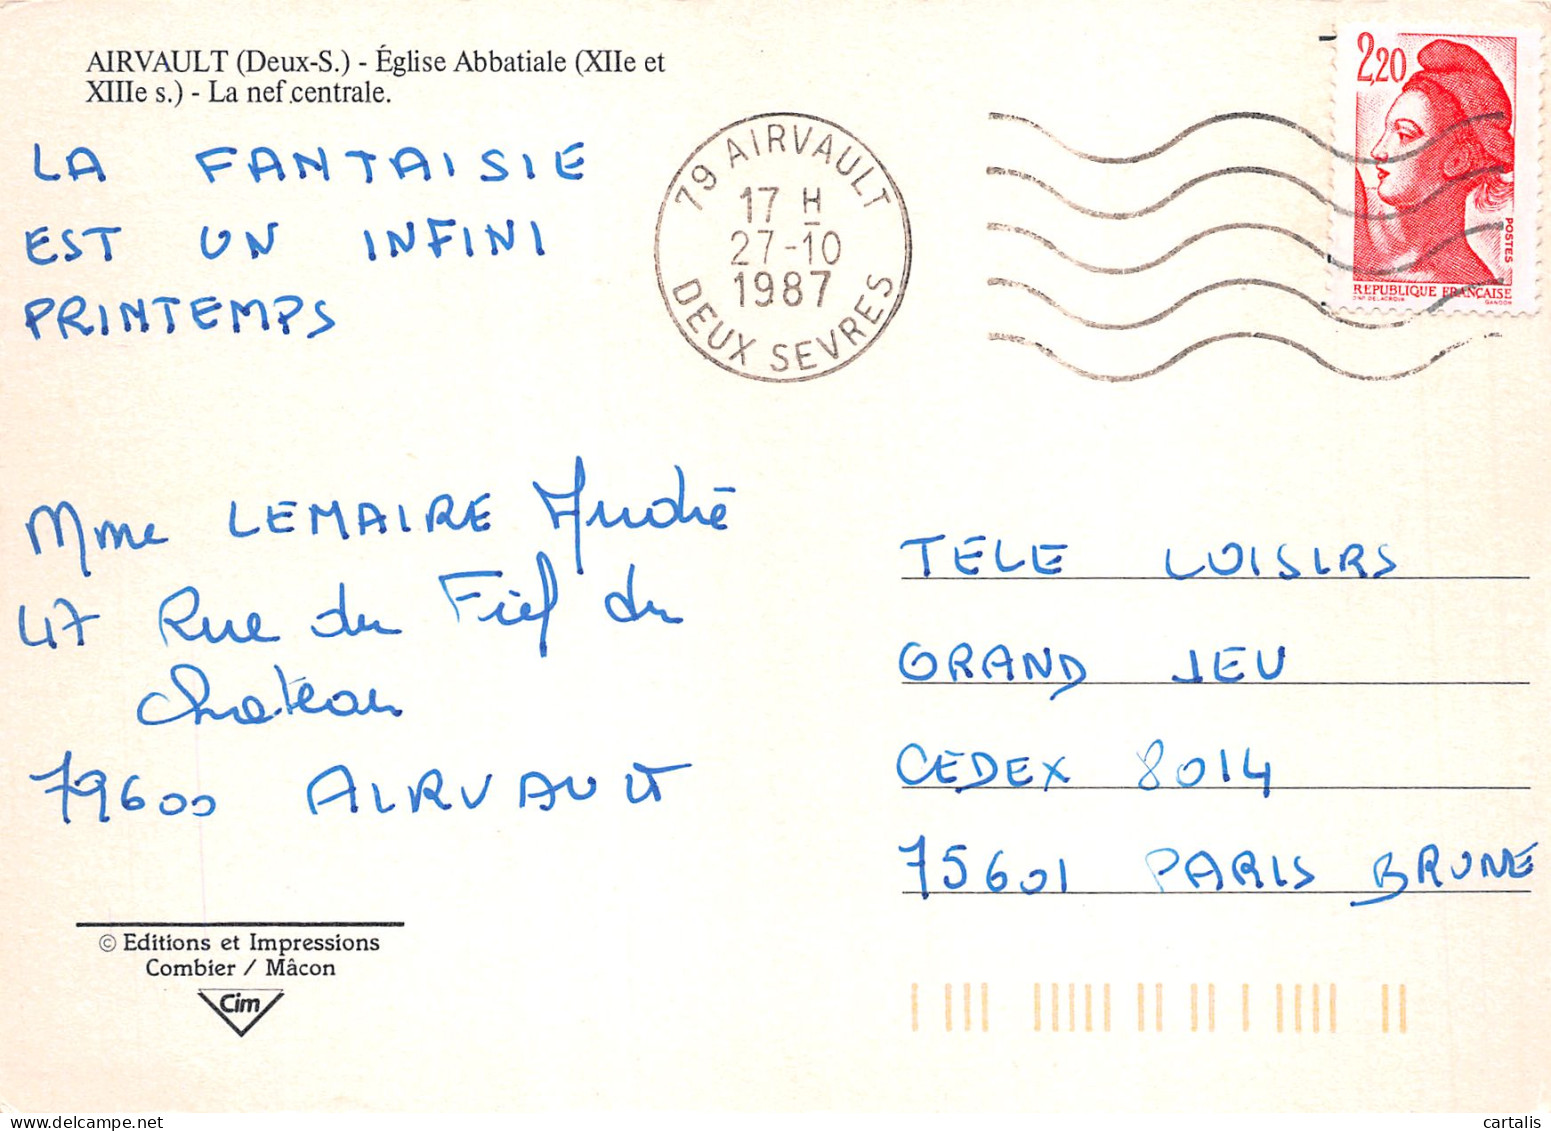 AIRVAULT (Deux-S.) - Église Abbatiale (XIIe et
XIIIe s.) - La nef centrale.
LA FANTAISIE
EST UN INFINI
PRINTEMPS
79 AIRVAULT
17 H
27-10
1987
DEUX SEVRES
2,20
POSTES
REPUBLIQUE FRANÇAISE
D'AP. DELACROIX GANDON
Mme LEMAIRE André
47 Rue du Fief du
chateau
79600 AIRVAULT
TELE LOISIRS
GRAND JEU
CEDEX 8014
75601 PARIS BRUNE
© Editions et Impressions
Combier / Mâcon
Cim
cartalis